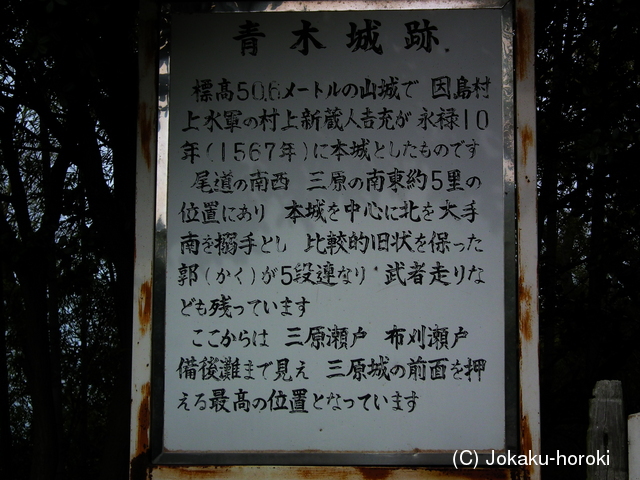 青木城跡.
標高50.6メートルの山城で 因島村
上水軍の村上新蔵人吉充が 永禄10
年(1567年)に本城としたものです
尾道の南西 三原の南東約5里の
位置にあり 本城を中心に北を大手
南を搦手とし 比較的旧状を保った
郭(かく)が5段連なり 武者走りな
ども残っています
ここからは 三原瀬戸 布刈瀬戸
備後灘まで見え 三原城の前面を押
える最高の位置となっています
(C) Jokaku-horoki